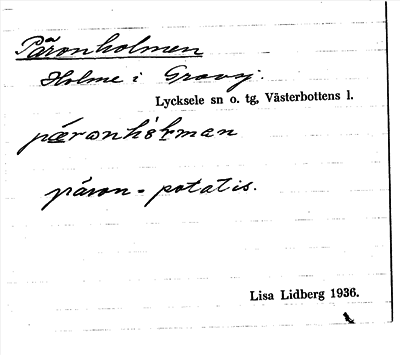 Påronholmen
Holme i Gravsj.
Lycksele sn o. tg, Västerbottens l.
påron = potatis.
Lisa Lidberg 1936.